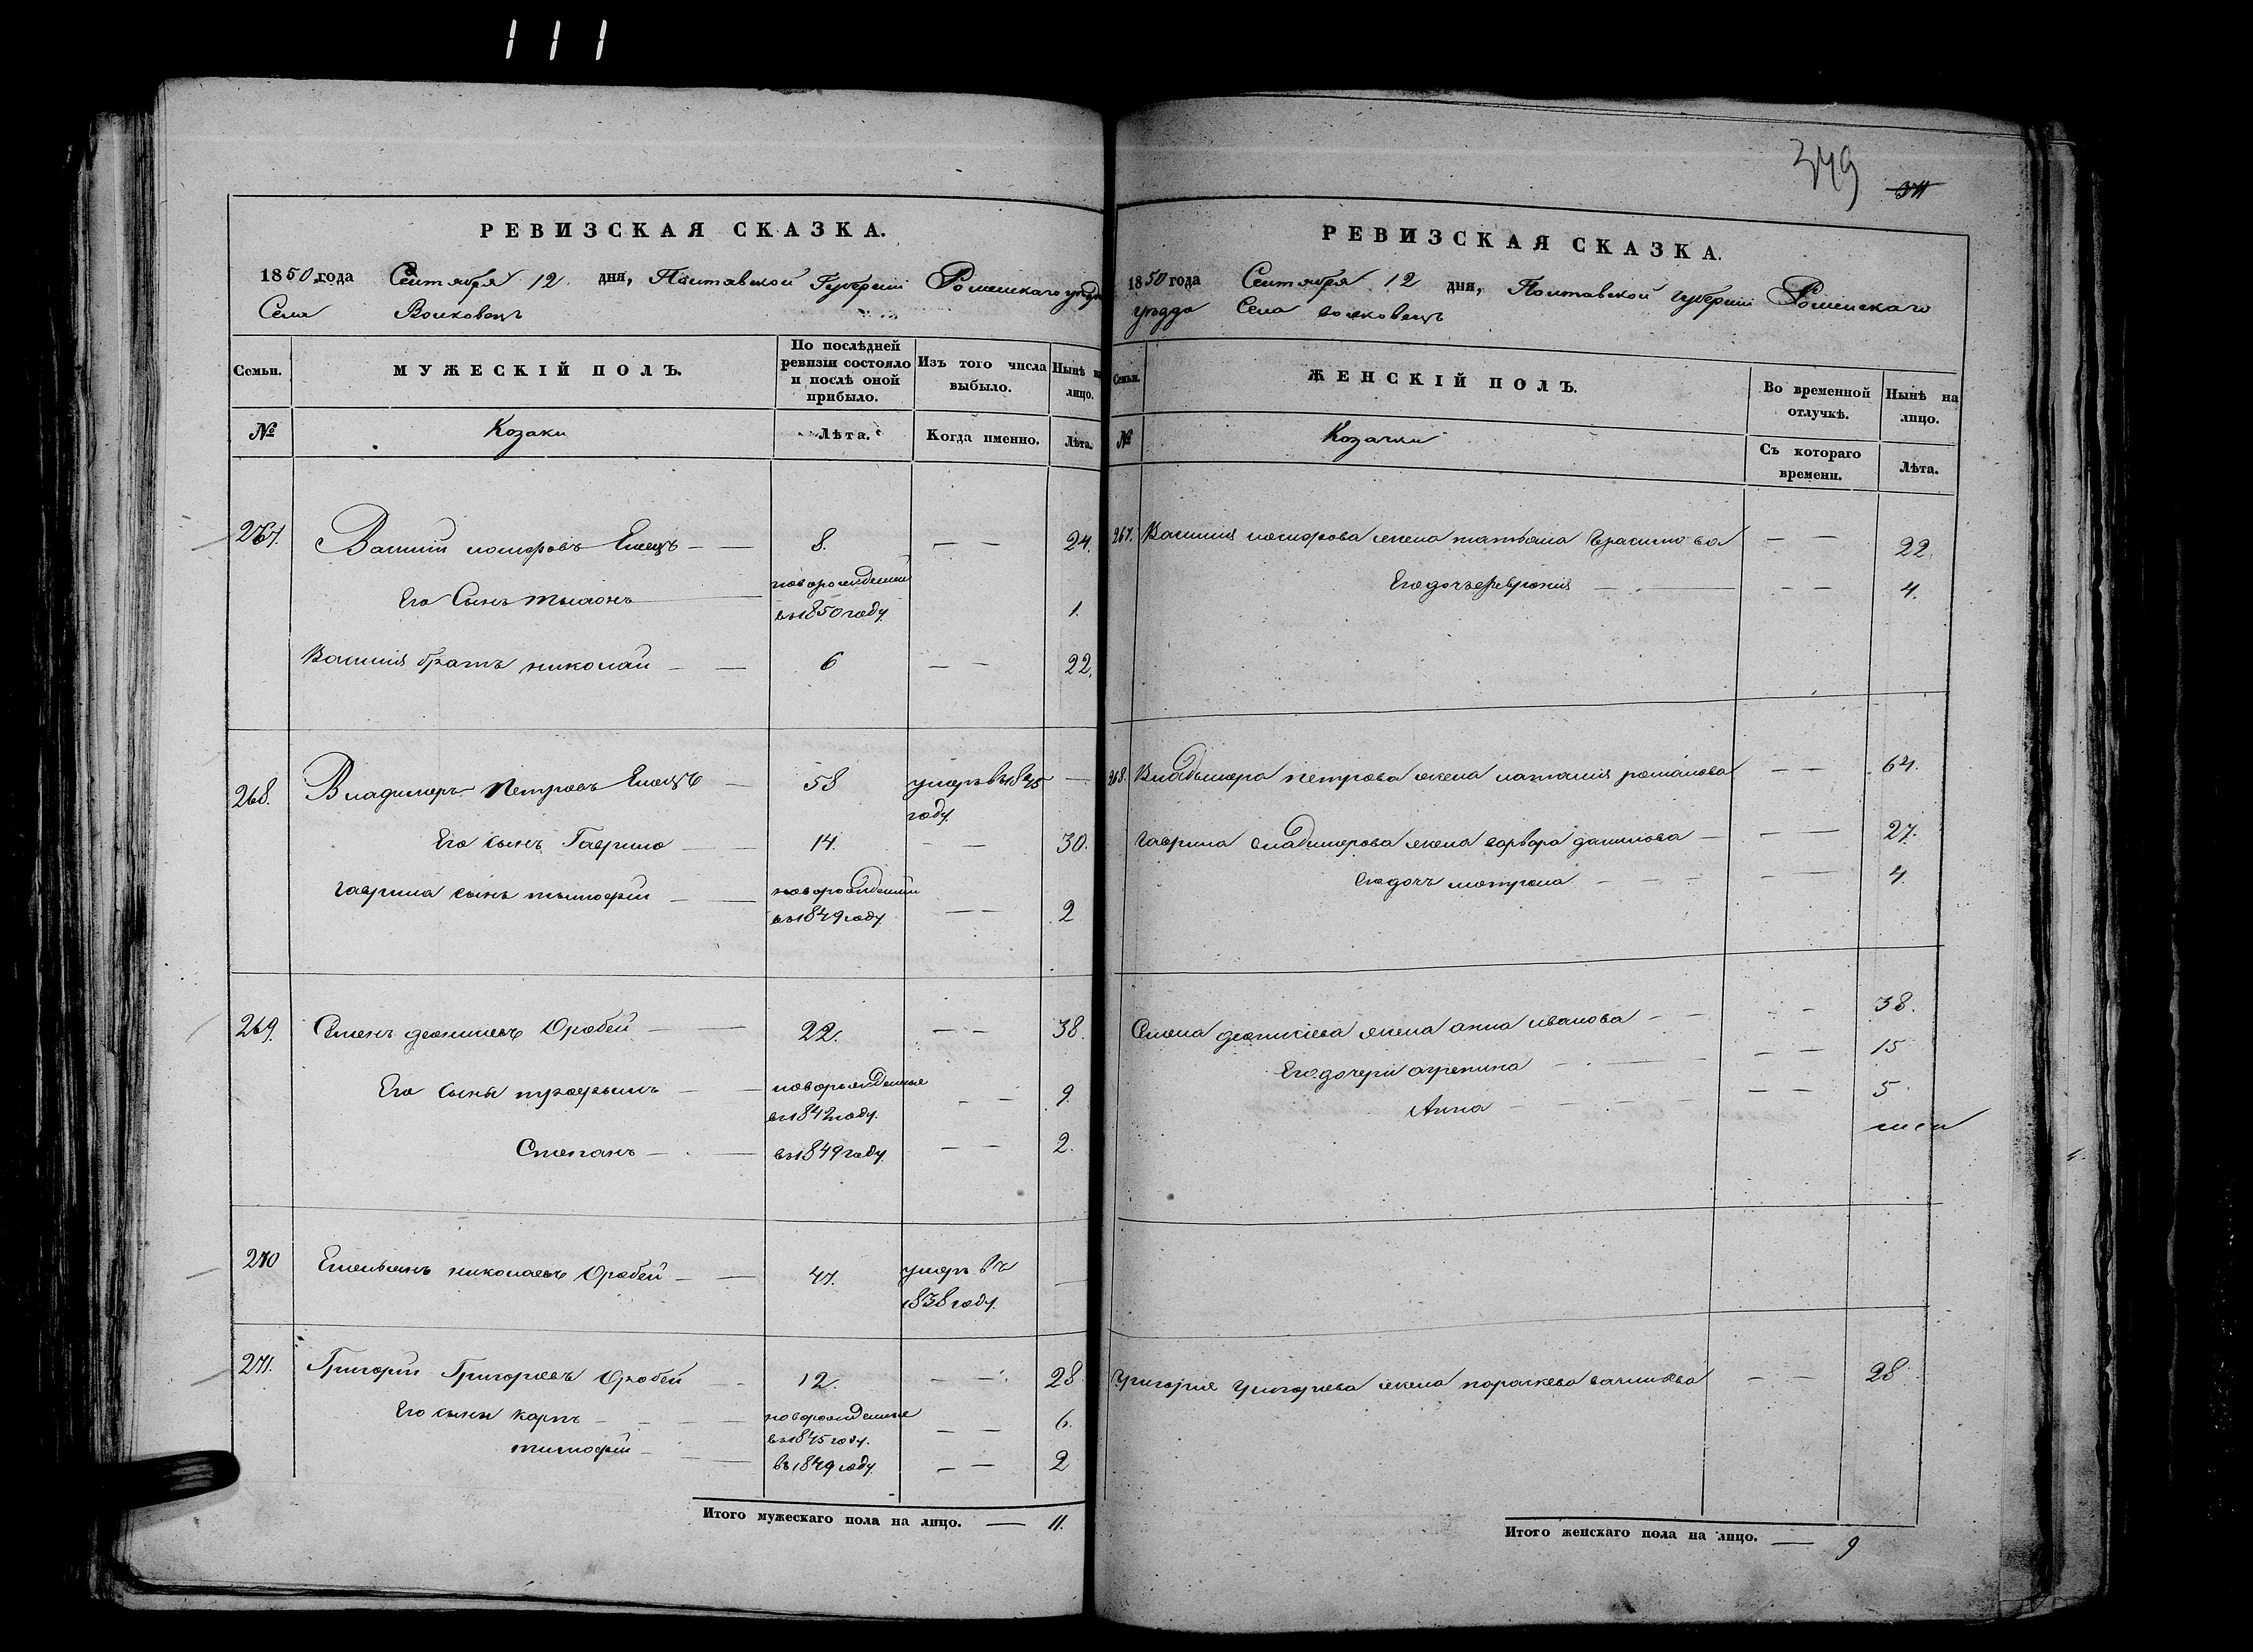 111
РЕВИЗСКАЯ СКАЗКА.
1850 года Сентября 12 дня, Полтавской Губернiи Роменскаго уѣзда
Села Волковецъ
Семьи.
МУЖЕСКIЙ ПОЛЪ.
По послѣдней ревизiи состояло и послѣ оной прибыло.
Изъ того числа выбыло.
Нынѣ на лицо.
№
Козаки
Лѣта.
Когда именно.
Лѣта.
267. Василiй Емецъ 8. — — 24.
Его Сынъ новорожденный
въ 1850 году 1.
Василiя братъ николай — — 6 — — 22.
268. Владимеръ Петровъ Емецъ — 58 умеръ въ 1845 —
году.
Его сынъ Гаврило — — 14. — — 30.
гаврила сынъ тымофiй — — новорожденный
въ 1849 году — — 2
269. Семенъ Оробей — — 22. — — 38.
Его сыны трофымъ — — новорожденные
въ 1842 году. — — 9.
Степанъ — — въ 1849 году — — 2.
270 Емельянъ николаевъ Оробей — — 47. умеръ въ —
1838 году.
271. Григорiй Григорьевъ Оробей — — 12. — — 28
Его сыны карпъ — — новорожденные
въ 1845 году. — — 6.
тимофiй — — въ 1849 году — — 2
Итого мужескаго пола на лицо. — 11.
349
РЕВИЗСКАЯ СКАЗКА.
1850 года Сентября 12 дня, Полтавской губернiи Роменскаго
уѣзда Села волковецъ
Семьи.
ЖЕНСКIЙ ПОЛЪ.
Во временной отлучкѣ.
Нынѣ на лицо.
№
Козачки
Съ котораго времени.
Лѣта.
267. Василiя жена татьяна — — 22.
Его дочъ февронiя — — 4.
268. Владымера петрова жена наталiя романова — — 64.
гаврила владимерова жена варвара данилова — — 27.
Его дочъ мотрона — — 4.
Семена жена анна иванова — — 38.
Его дочери агрепина — — 15
Анна — — 5
Григорiя григорьева жена параскева васильева — — 28
Итого женскаго пола на лицо. — 9